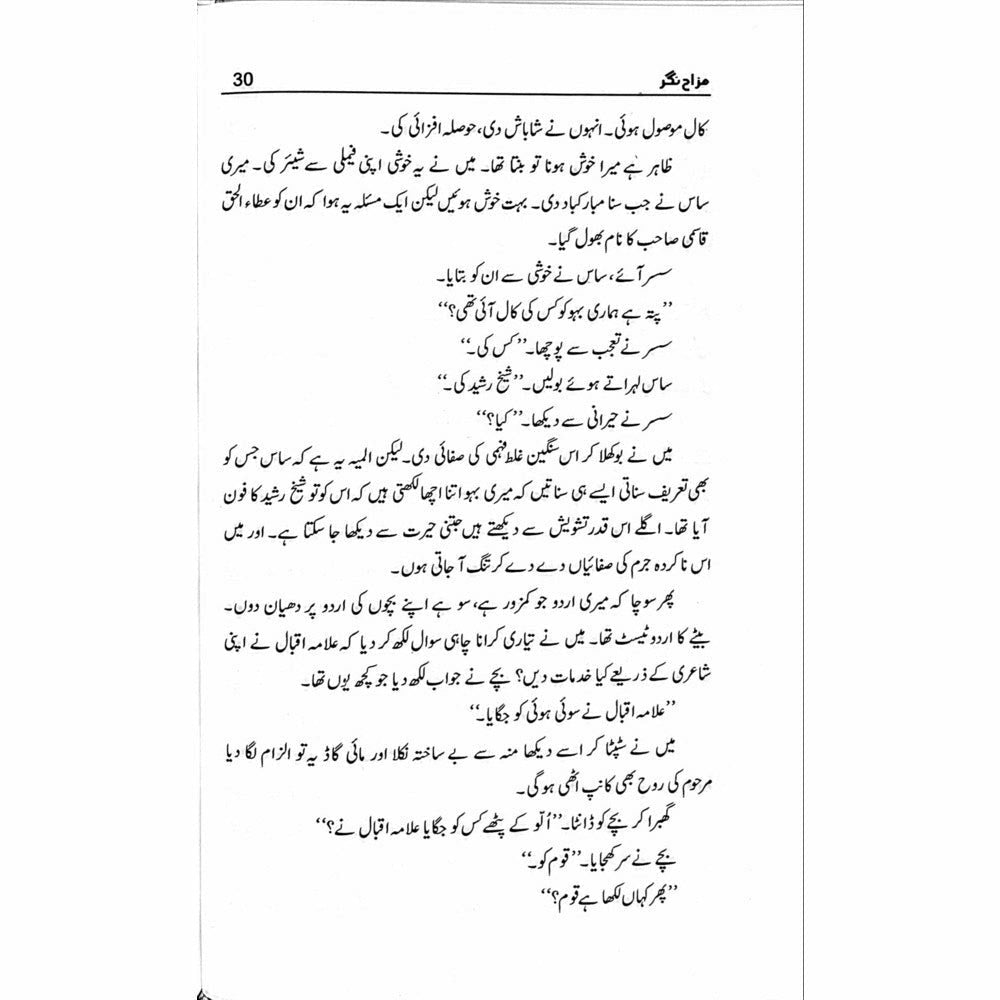 مزاح نگر
30
کال موصول ہوئی۔ انہوں نے شاباش دی، حوصلہ افزائی کی۔
ظاہر ہے میرا خوش ہونا تو بنتا تھا۔ میں نے یہ خوشی اپنی فیملی سے شیئر کی۔ میری
ساس نے جب سنا مبارکباد دی۔ بہت خوش ہوئیں لیکن ایک مسئلہ یہ ہوا کہ ان کو عطاء الحق
قاسمی صاحب کا نام بھول گیا۔
سسر آئے، ساس نے خوشی سے ان کو بتایا۔
’’پتہ ہے ہماری بہو کو کس کی کال آئی تھی؟‘‘
سسر نے تعجب سے پوچھا۔ ’’کس کی۔‘‘
ساس لہراتے ہوئے بولیں۔ ’’شیخ رشید کی۔‘‘
سسر نے حیرانی سے دیکھا۔ ’’کیا؟‘‘
میں نے بوکھلا کر اس سنگین غلط فہمی کی صفائی دی۔ لیکن المیہ یہ ہے کہ ساس جس کو
بھی تعریف سناتی ایسے ہی سناتیں کہ میری بہو اتنا اچھا لکھتی ہیں کہ اس کو تو شیخ رشید کا فون
آیا تھا۔ اگلے اس قدر تشویش سے دیکھتے ہیں جتنی حیرت سے دیکھا جا سکتا ہے۔ اور میں
اس ناکردہ جرم کی صفائیاں دے دے کر تنگ آ جاتی ہوں۔
پھر سوچا کہ میری اردو جو کمزور ہے، سو ہے اپنے بچوں کی اردو پر دھیان دوں۔
بیٹے کا اردو ٹیسٹ تھا۔ میں نے تیاری کرانا چاہی سوال لکھ کر دیا کہ علامہ اقبال نے اپنی
شاعری کے ذریعے کیا خدمات دیں؟ بچے نے جواب لکھ دیا جو کچھ یوں تھا۔
’’علامہ اقبال نے سوئی ہوئی کو جگایا۔‘‘
میں نے سٹپٹا کر اسے دیکھا منہ سے بے ساختہ نکلا اور مائی گاڈ یہ تو الزام لگا دیا
مرحوم کی روح بھی کانپ اٹھی ہوگی۔
گھبرا کر بچے کو ڈانٹا۔ ’’اُلّو کے پٹھے کس کو جگایا علامہ اقبال نے؟‘‘
بچے نے سر کھجایا۔ ’’قوم کو۔‘‘
’’پھر کہاں لکھا ہے قوم؟‘‘